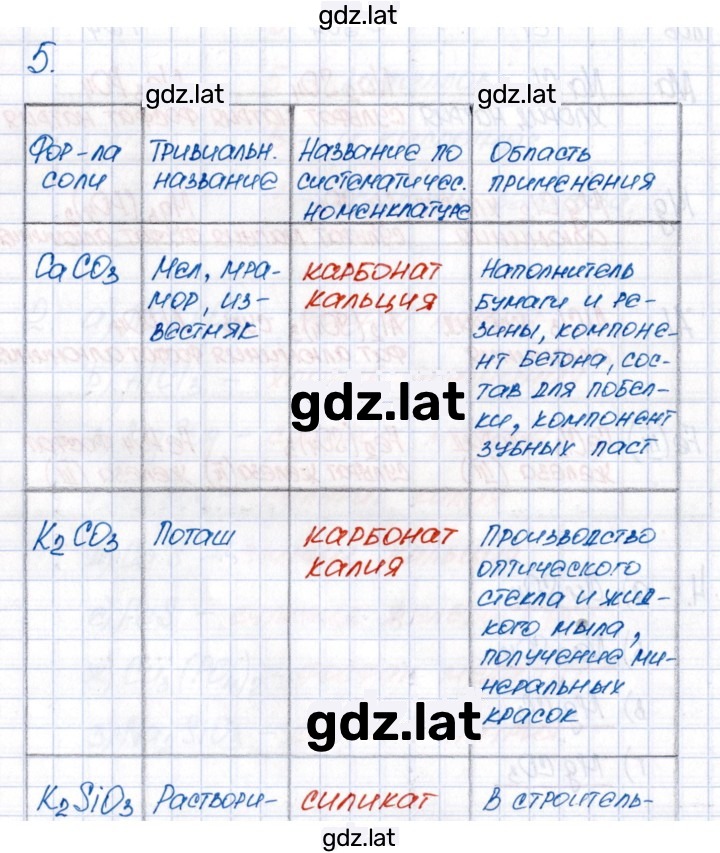 gdz.lat
5.
gdz.lat gdz.lat
Фор-ла соли | Тривиальн. название | Название по систематичес. номенклатуре | Область применения
CaCO3 | Мел, мра-
мор, из-
вестняк | карбонат
кальция | Наполнитель
бумаги и ре-
зины, компоне-
нт бетона, сос-
тав для побел-
ки, компонент
зубных паст
gdz.lat
K2CO3 | Поташ | карбонат
калия | Производство
оптического
стекла и жид-
кого мыла,
получение ми-
неральных
красок
gdz.lat
K2SiO3 | Раствори- | силикат | В строитель-
gdz.lat